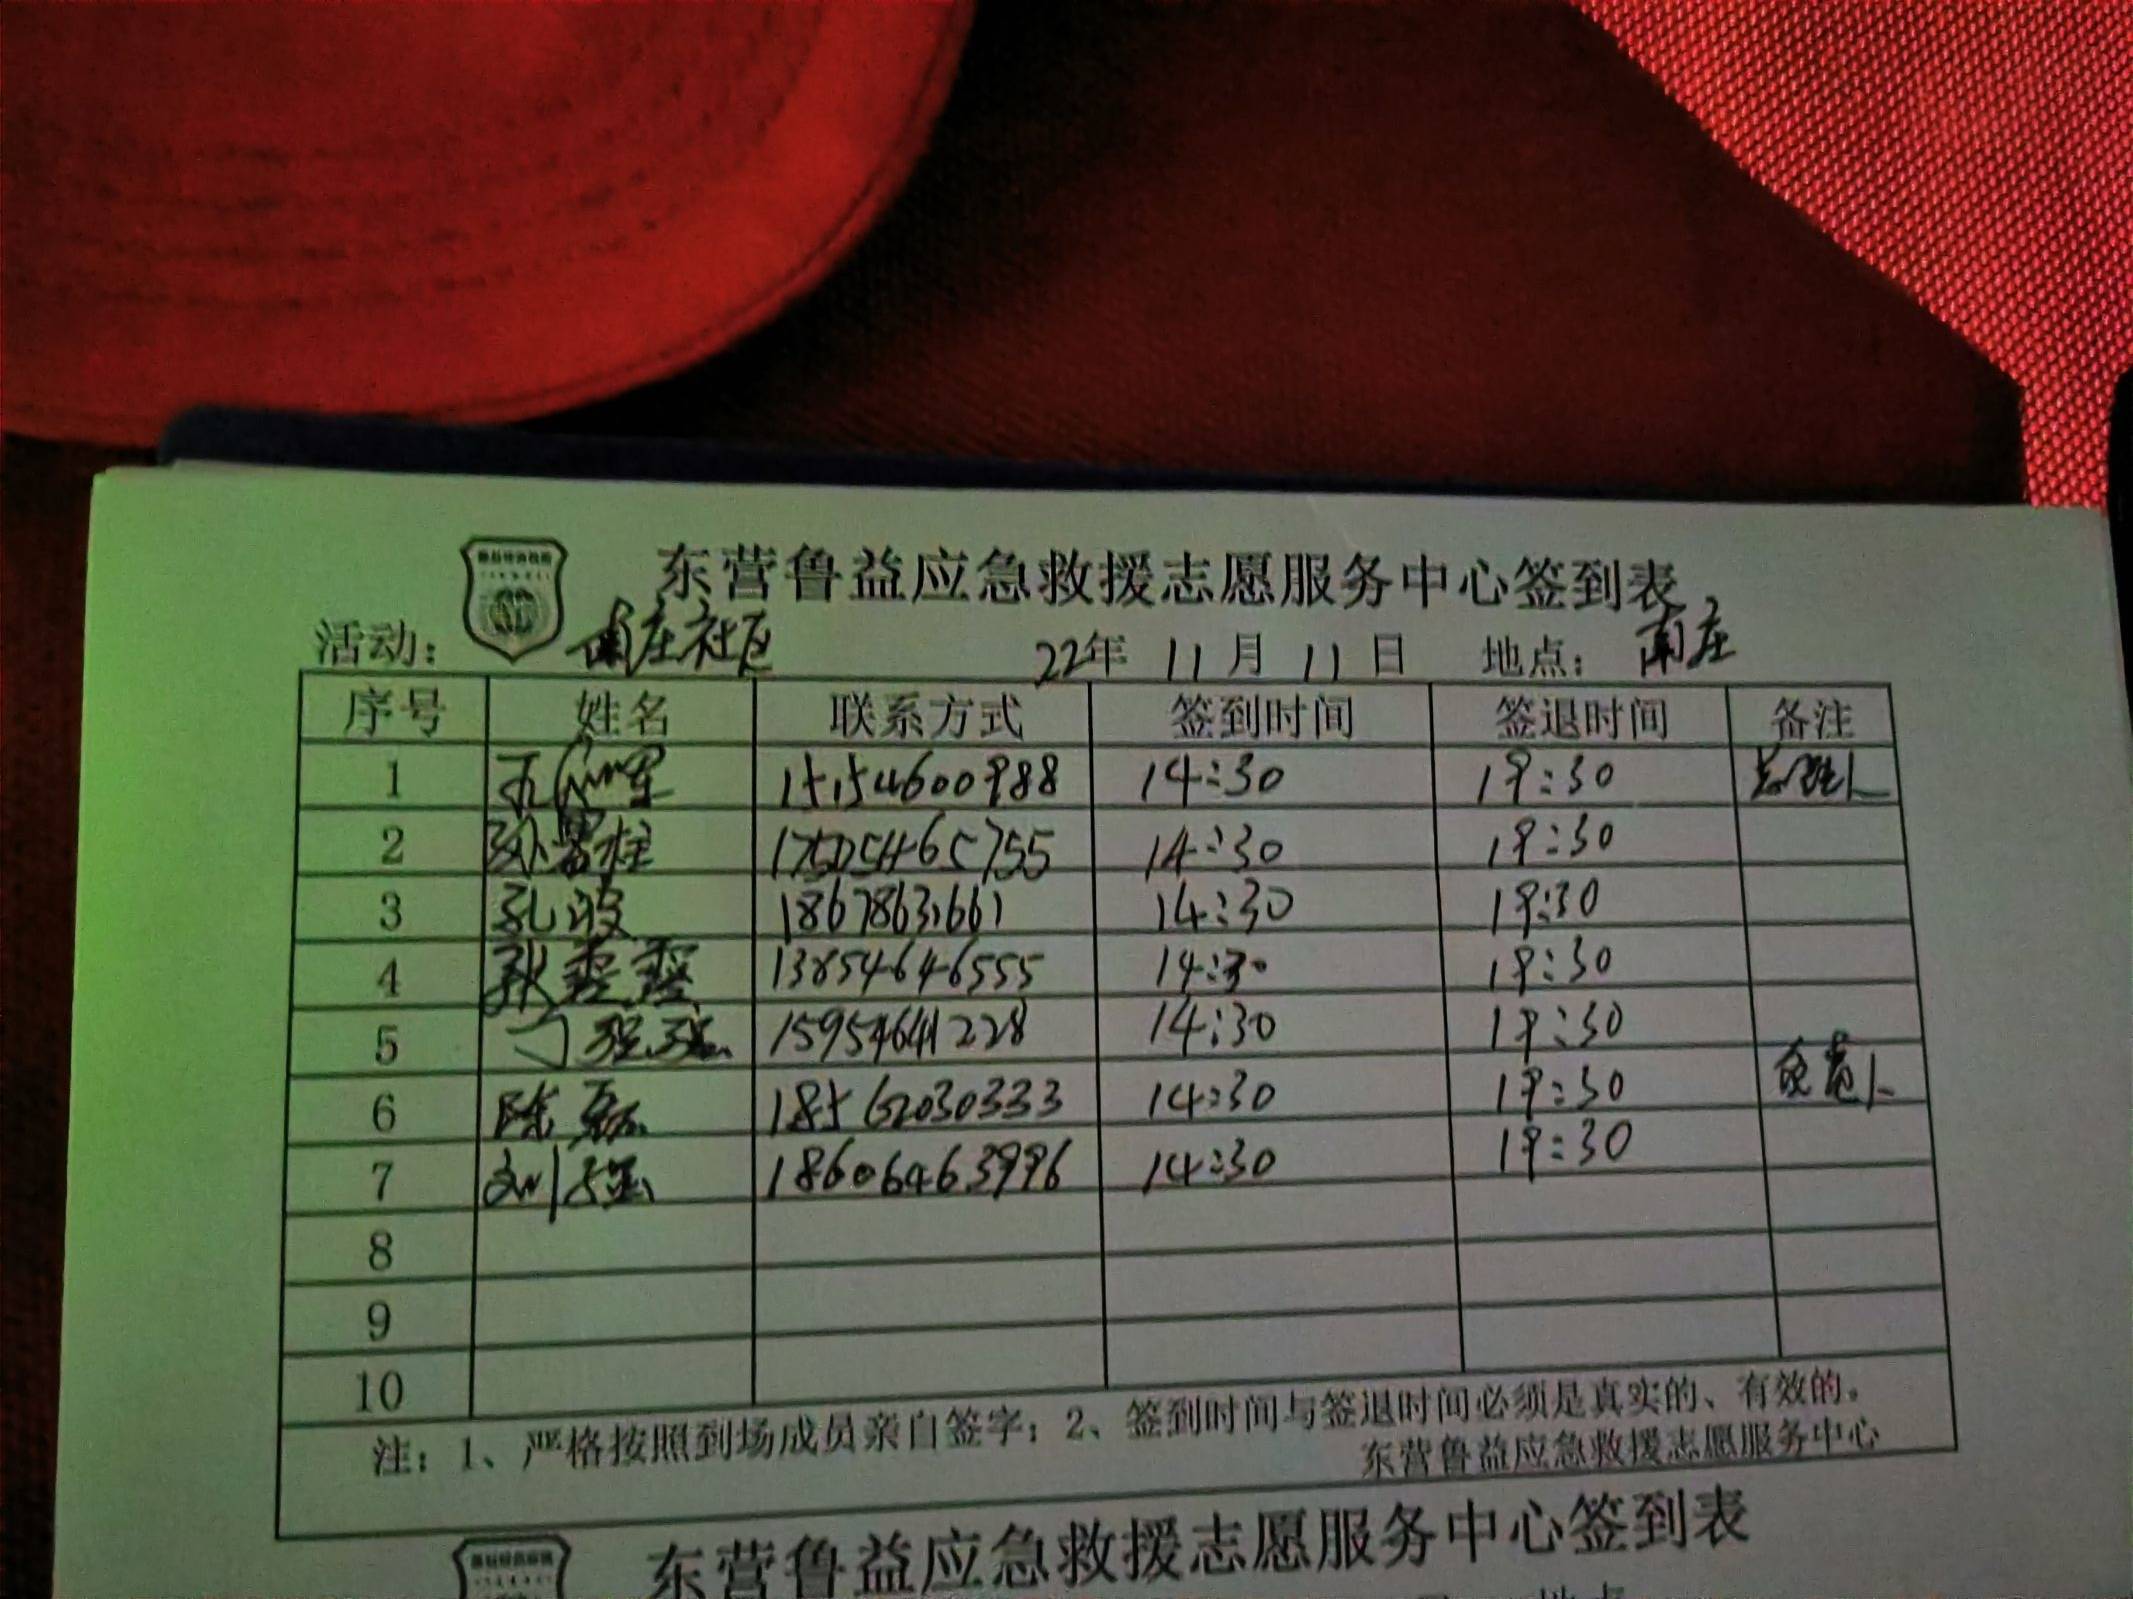 东营鲁益应急救援志愿服务中心签到表
活动： 南庄社区 22年 11月 11日 地点： 南庄
序号 姓名 联系方式 签到时间 签退时间 备注
1 15154600988 14:30 19:30
2 14:30 19:30
3 孔波 18678631661 14:30 19:30
4 13854646555 14:30 19:30
5 刁强强 15954641228 14:30 19:30
6 陈磊 18562030333 14:30 19:30
7 刘强 18606463996 14:30 19:30
8
9
10
注：1、严格按照到场成员亲自签字；2、签到时间与签退时间必须是真实的、有效的。
东营鲁益应急救援志愿服务中心
东营鲁益应急救援志愿服务中心签到表
地点